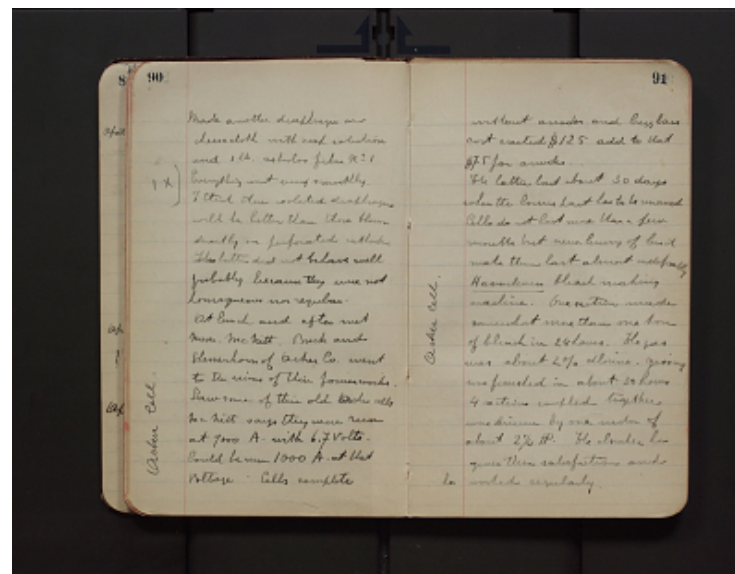 8
90
Made another diaphragm on
cheesecloth with soap solution
and 1 lb. asbestos fibre No 1
Everything went very smoothly.
1 x
I think these isolated diaphragms
will be better than those blown
directly on perforated cathode
The latter did not behave well
probably because they were not
homogeneous nor regular.
At lunch and after met
Mess. McNitt. and
of Acker Co. went
to the ruins of their former works.
Saw some of their old cells
McNitt says they were run
at 7000 A. with 6.7 Volts.
Could be run 1000 A. at that
Voltage - Cells complete
Acker Cell.
91
without anodes and
cost $125 add to that
$75 for anodes.
The latter last about 30 days
when the lower part has to be
Cells do not last more than a few
months but new lining of
make them last almost indefinitely
bleach making
machine. One section made
somewhat more than one ton
of bleach in 24 hours. The gas
was about 2% chlorine.
was finished in about 20 hours
4 sections coupled together
was driven by one motor of
about 2½ HP. He
gives them satisfaction and
worked regularly.
Acker Cell.